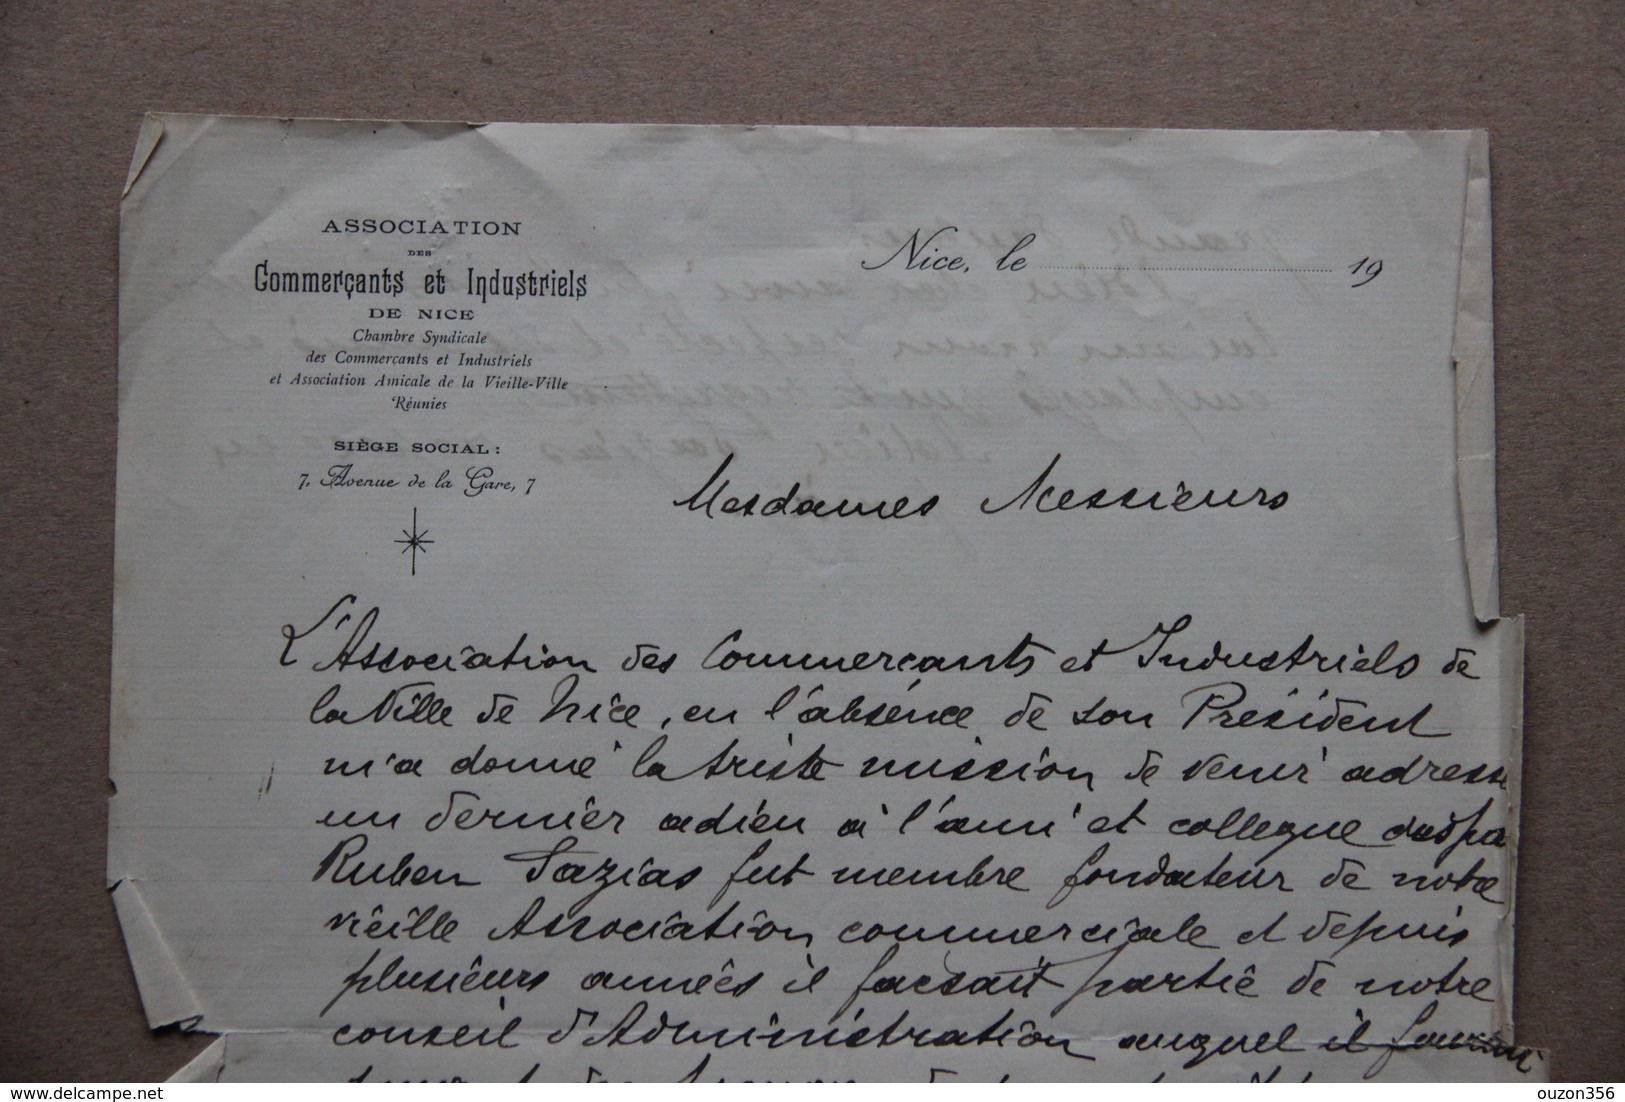 ASSOCIATION
DES
Commerçants et Industriels
DE NICE
Chambre Syndicale
des Commercants et Industriels
et Association Amicale de la Vieille-Ville
Réunies
SIÈGE SOCIAL :
7, Avenue de la Gare, 7
Nice, le 19
Mesdames Messieurs
L'Association des Commercants et Industriels de
la Ville de Nice, en l'absence de son Président
m'a donné la triste mission de venir adresse
un dernier adieu à l'ami et collegue
Ruben Sazias fut membre fondateur de notre
vieille Association commerciale et depuis
plusieurs années il faisait partie de notre
conseil d'Administration auquel il
delcampe.net
ouzon356